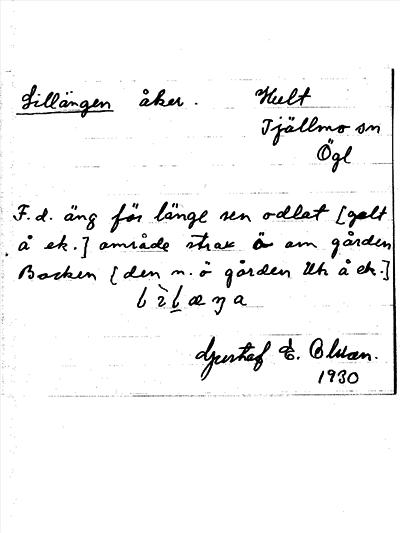 Lillängen åker. Hult
Tjällmo sn
Ögl
F.d. äng för länge sen odlat [gult
å ek.] område strax ö om gården
Backen [den n.ö gården Uh å ek.]
Gustaf E. Olsson.
1930